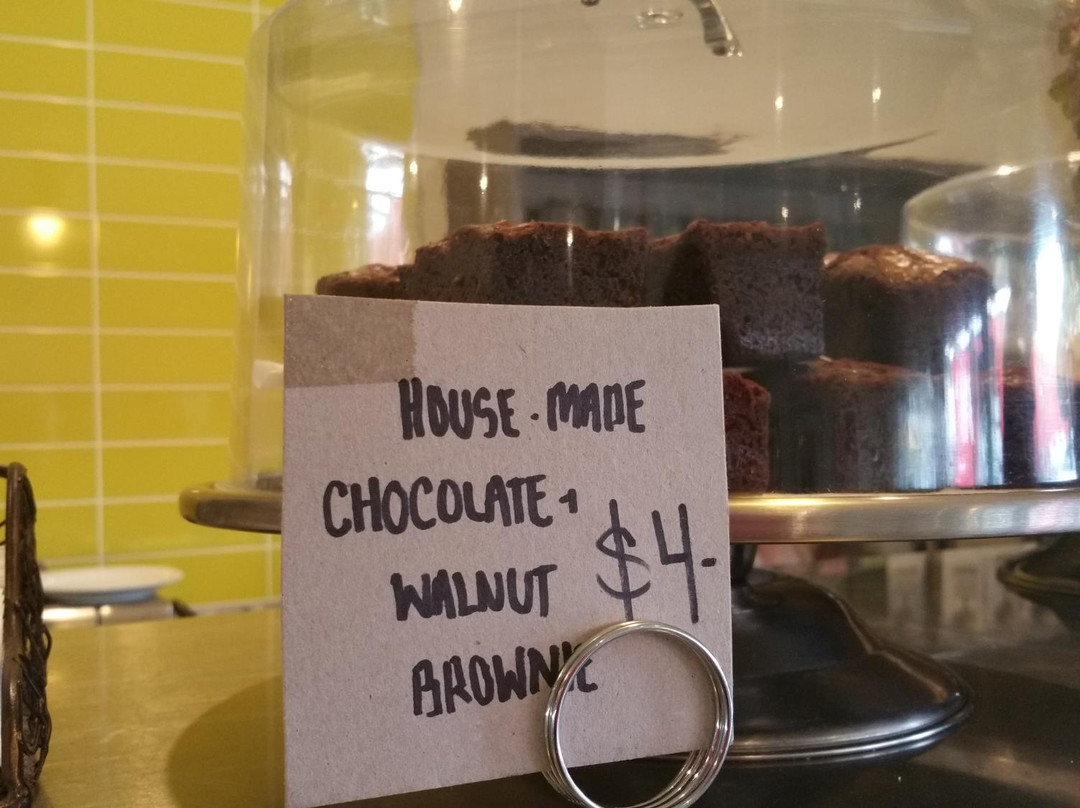 HOUSE.MADE
CHOCOLATE +
WALNUT
BROWNIE
$4-